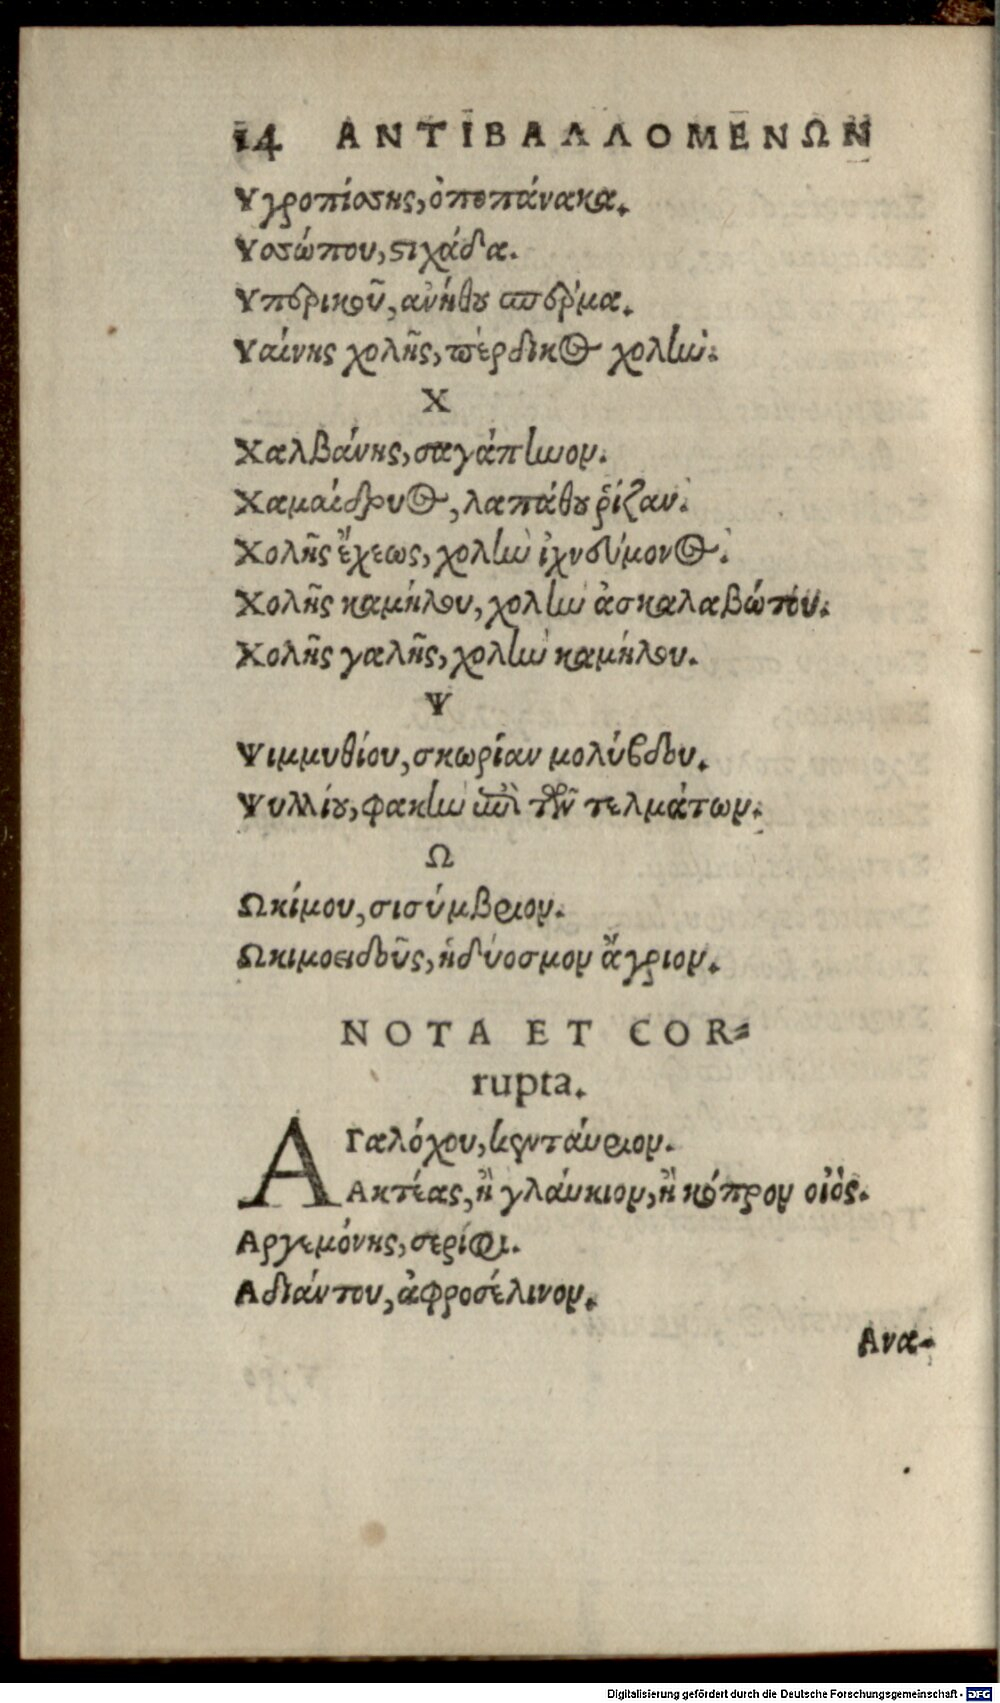 14 ΑΝΤΙΒΑΛΛΟΜΕΝΩΝ
Υγροπίασης, ὀποπάνακα.
Υοσώπου, ϛιχάδα.
Υπερικοῦ, ἀνήθου σπέρμα.
Υαίνης χολῆς, πέρδικος χολὴν.
Χ
Χαλβάνης, σαγάπηνον.
Χαμαίδρυος, λαπάθου ῥίζαν.
Χολῆς ἔχεως, χολὴν ἰχνεύμονος.
Χολῆς καμήλου, χολὴν ἀσκαλαβώτου.
Χολῆς γαλῆς, χολὴν καμήλου.
Ψ
Ψιμμυθίου, σκωρίαν μολύβδου.
Ψυλλίου, φακὴν ἀπὸ τῶν τελμάτων.
Ω
Ωκίμου, σισύμβριον.
Ωκιμοειδοῦς, ἡδύοσμον ἄγριον.
NOTA ET COR=
rupta.
ΑΓαλόχου, κενταύριον.
Ακτέας, ἢ γλάυκιον, ἢ κόπρον οἰὸς.
Αργεμόνης, σερίφι.
Αδιάντου, ἀφροσέλινον.
Ανα-
Digitalisierung gefördert durch die Deutsche Forschungsgemeinschaft - DFG